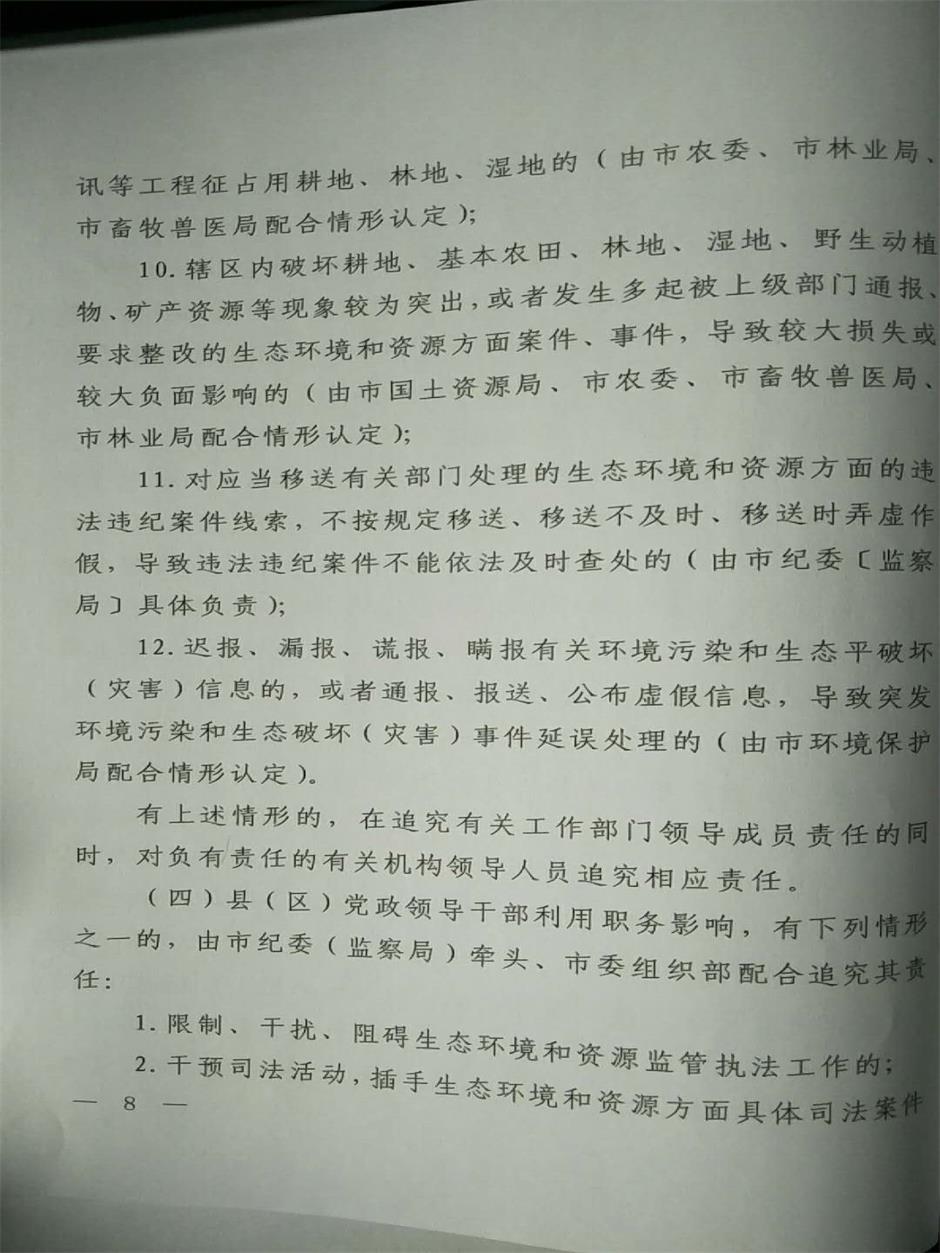 讯等工程征占用耕地、林地、湿地的（由市农委、市林业局、
市畜牧兽医局配合情形认定）；
10. 辖区内破坏耕地、基本农田、林地、湿地、野生动植
物、矿产资源等现象较为突出，或者发生多起被上级部门通报、
要求整改的生态环境和资源方面案件、事件，导致较大损失或
较大负面影响的（由市国土资源局、市农委、市畜牧兽医局、
市林业局配合情形认定）；
11. 对应当移送有关部门处理的生态环境和资源方面的违
法违纪案件线索，不按规定移送、移送不及时、移送时弄虚作
假，导致违法违纪案件不能依法及时查处的（由市纪委〔监察
局〕具体负责）；
12. 迟报、漏报、谎报、瞒报有关环境污染和生态平破坏
（灾害）信息的，或者通报、报送、公布虚假信息，导致突发
环境污染和生态破坏（灾害）事件延误处理的（由市环境保护
局配合情形认定）。
有上述情形的，在追究有关工作部门领导成员责任的同
时，对负有责任的有关机构领导人员追究相应责任。
（四）县（区）党政领导干部利用职务影响，有下列情形
之一的，由市纪委（监察局）牵头、市委组织部配合追究其责
任：
1. 限制、干扰、阻碍生态环境和资源监管执法工作的；
2. 干预司法活动，插手生态环境和资源方面具体司法案件
— 8 —